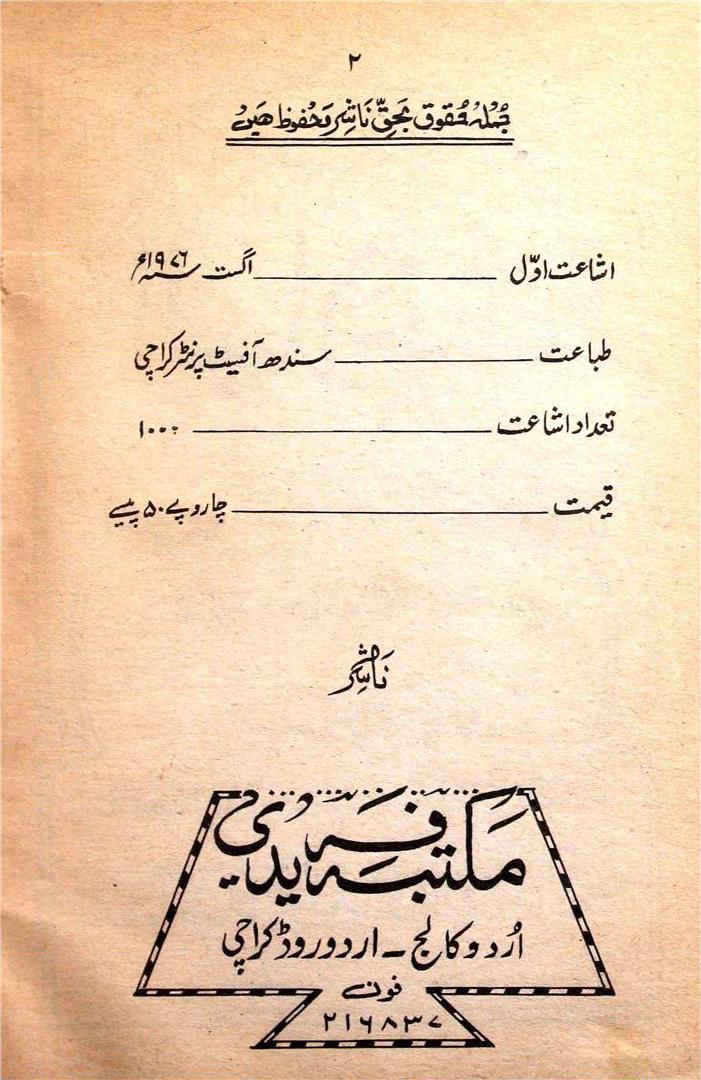 ۲
جملہ حقوق بحق ناشر محفوظ ھیں
اشاعت اوّل ــــــ اگست ۱۹۷۶ء
طباعت ــــــ سندھ آفیسٹ پرنٹر کراچی
تعداد اشاعت ــــــ ۱۰۰۰
قیمت ــــــ چار روپے ۵۰ پیسے
ناشر
مکتبہ فریدی
اُردو کالج - اردو روڈ کراچی
فون
۲۱۶۸۳۷